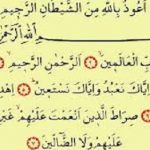 أَعُوذُ بِاللَّهِ مِنَ الشَّيْطَانِ الرَّجِيمِ
اللَّهِ
الْعَالَمِينَ الرَّحْمٰنِ الرَّحِيمِ
إِيَّاكَ نَعْبُدُ وَإِيَّاكَ نَسْتَعِينُ
صِرَاطَ الَّذِينَ أَنْعَمْتَ عَلَيْهِمْ غَيْرِ
عَلَيْهِمْ وَلَا الضَّالِّينَ